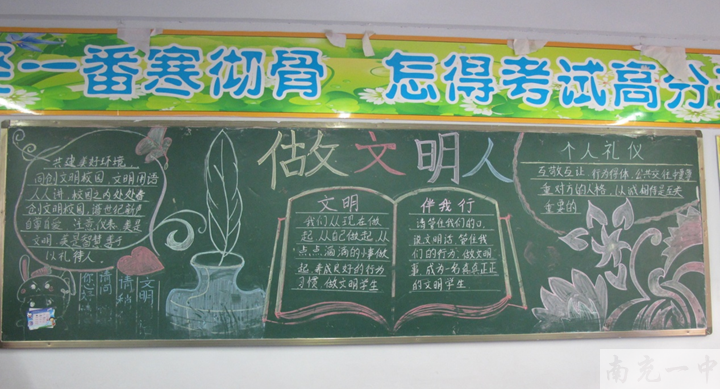 一番寒彻骨 怎得考试高分
做文明人
共建美好环境
同创文明校园 文明用语
人人讲 校园之内处处春
创文明校园 谱世纪新声
自尊自爱 注重仪表 真是
文明
以礼待人
你好
请问
请稍
文明
文明
我们从现在做
起 从自己做起 从
点点滴滴的小事做
起 养成良好的行为
习惯 做文明学生
伴我行
请管住我们的口
说文明话 管住我
们的行为 做文明
事 成为一名真真正正
的文明学生
个人礼仪
互敬互让 行为得体 公共交往中要尊
重对方的人格
重要的
南充一中